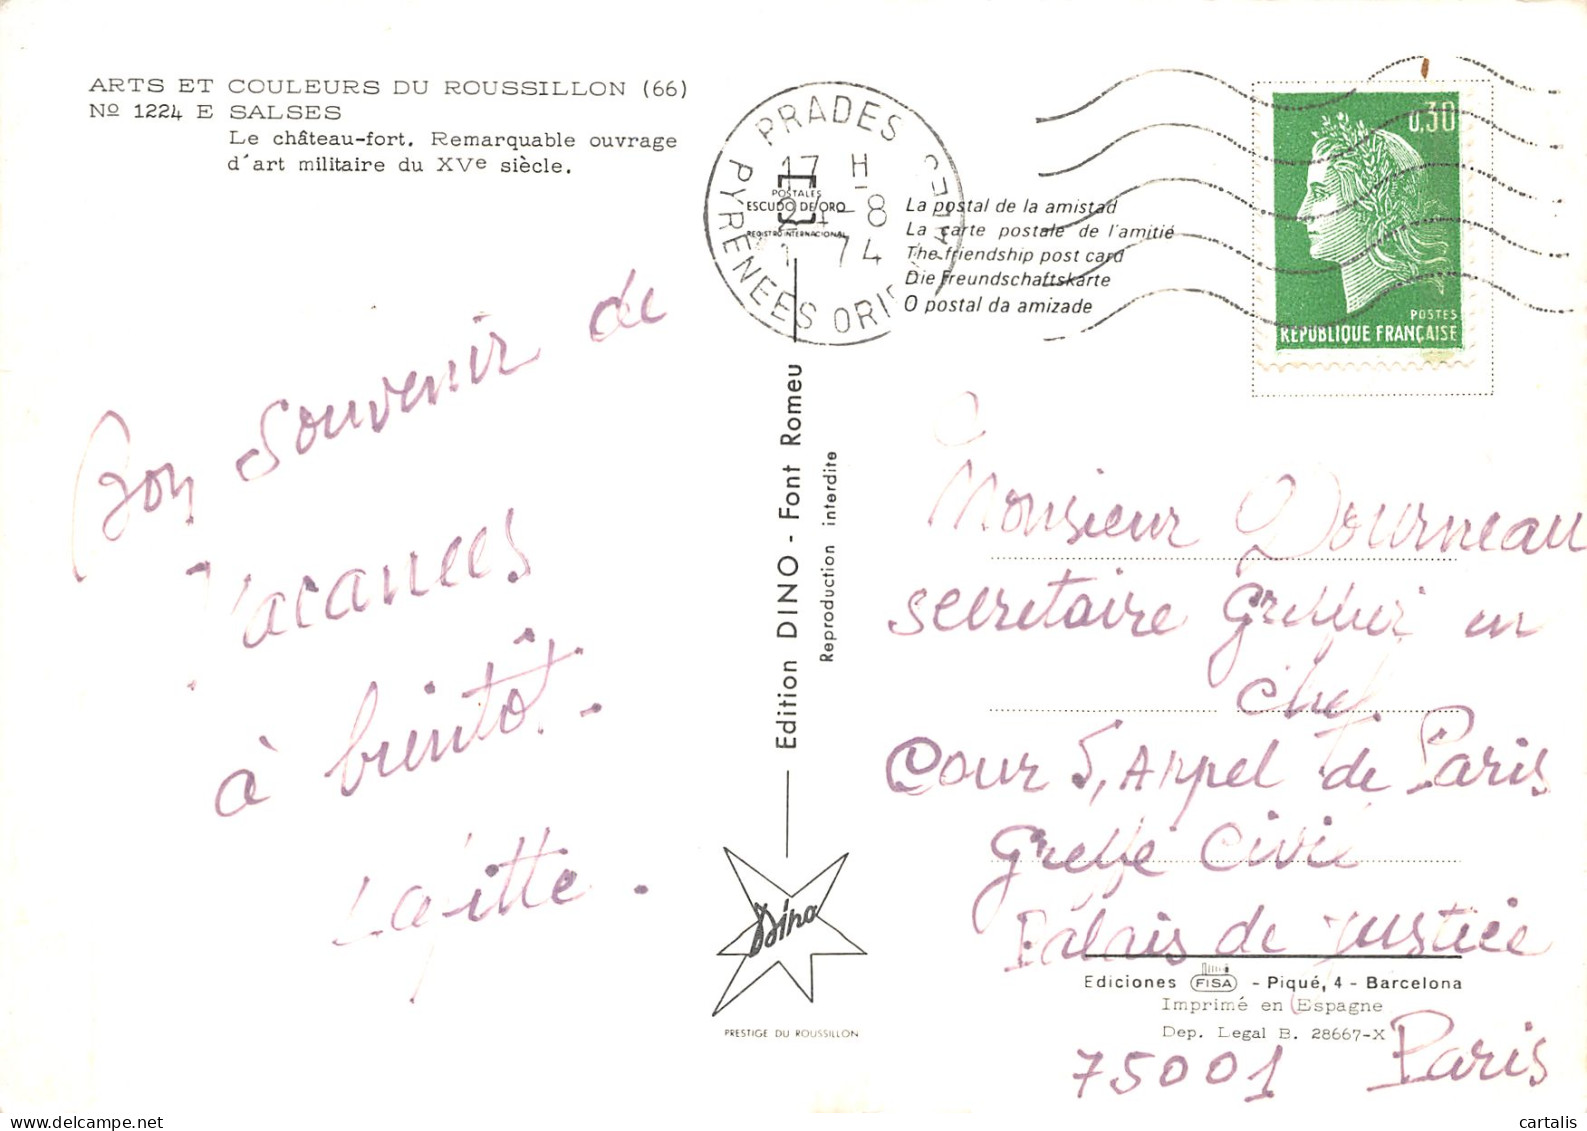 ARTS ET COULEURS DU ROUSSILLON (66)
Nº 1224 E SALSES
Le château-fort. Remarquable ouvrage
d'art militaire du XVe siècle.
PRADES
17 H
24-8
1974
PYRENEES ORIENTALES
POSTALES
ESCUDO DE ORO
REGISTRO INTERNACIONAL
La postal de la amistad
La carte postale de l'amitié
The friendship post card
Die Freundschaftskarte
O postal da amizade
0,30
POSTES
REPUBLIQUE FRANÇAISE
Bon Souvenir de
Vacances
à bientôt. -
Lafitte.
Edition DINO - Font Romeu
Reproduction interdite
Dino
PRESTIGE DU ROUSSILLON
Monsieur Dourneau
secretaire Greffier en
chef
Cour d'Appel de Paris
Greffe Civil
Palais de justice
Ediciones FISA - Piqué, 4 - Barcelona
Imprimé en Espagne
Dep. Legal B. 28667-X
75001 Paris
cartalis